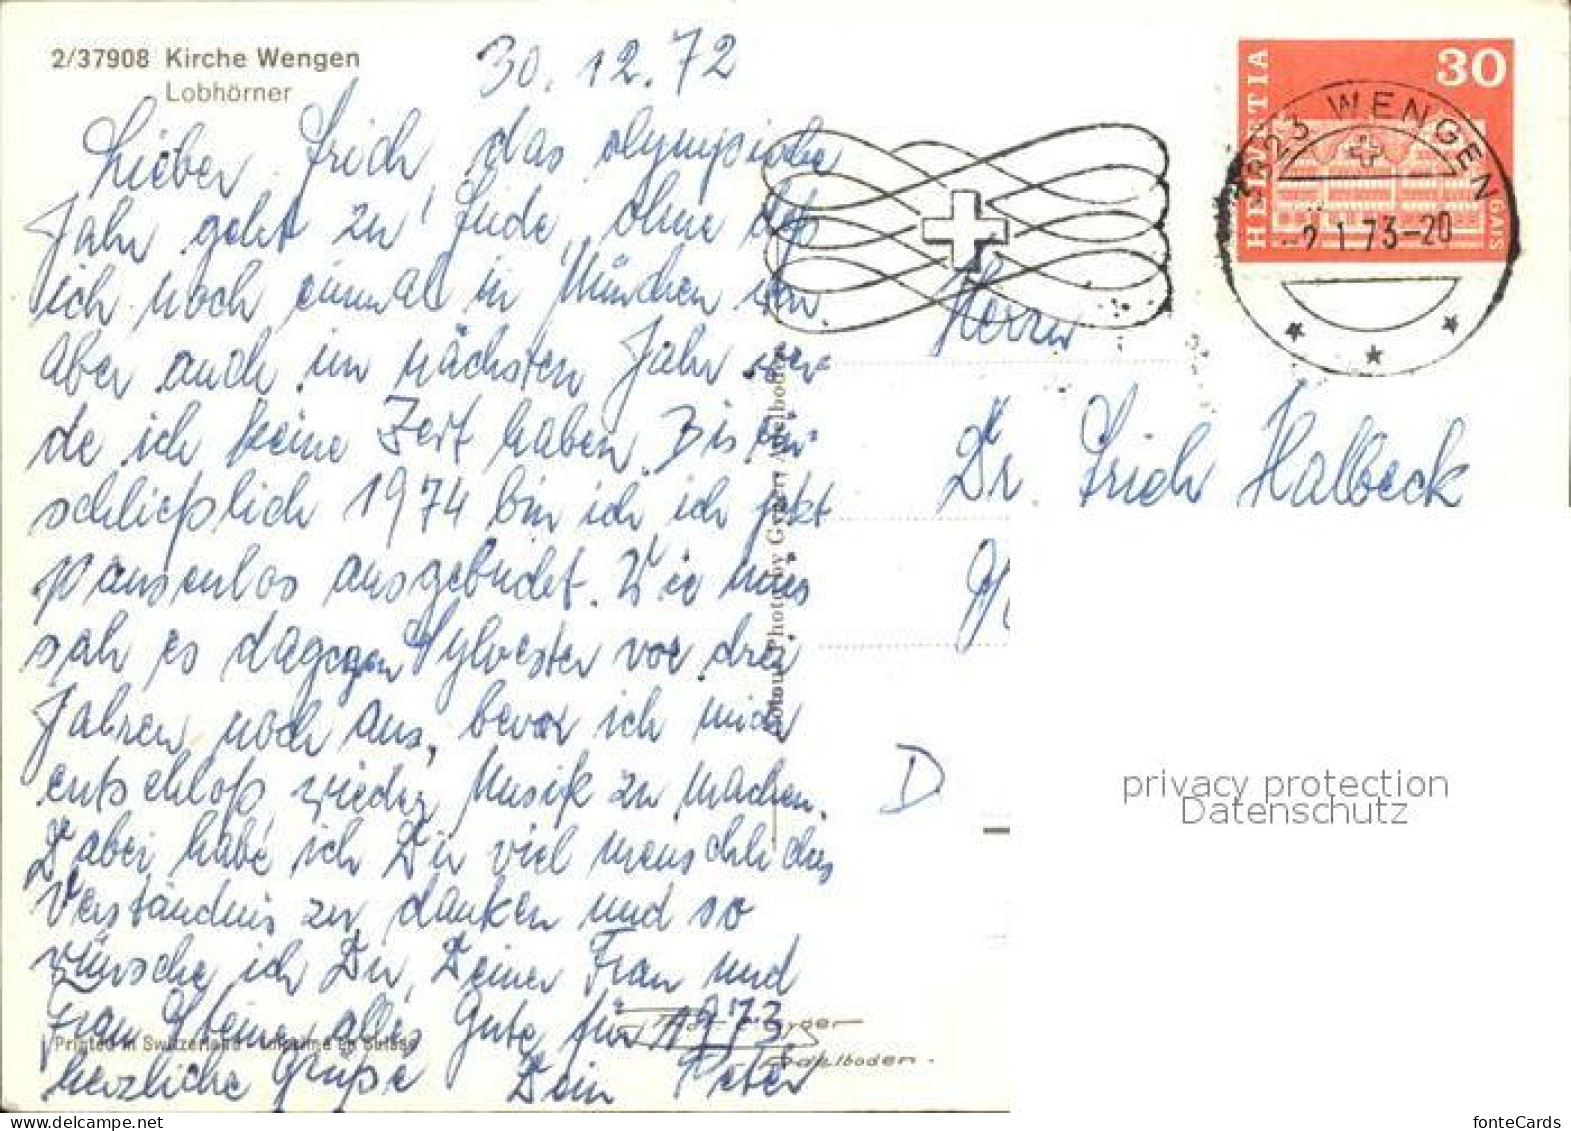 2/37908 Kirche Wengen
Lobhörner
30. 12. 72
HELVETIA 30
3823 WENGEN
-2.1.73-20
GAIS
Lieber Erich, das olympische
Jahr geht zu Ende, ohne daß
ich noch einmal in München war
aber auch im nächsten Jahr wer-
de ich keine Zeit haben. Bis ein-
schließlich 1974 bin ich ich jetzt
pausenlos ausgebudet. Wie mies
sah es dagegen Sylvester vor drei
Jahren noch aus, bevor ich mich
entschloß wieder Musik zu machen.
Dabei habe ich Dir viel menschliches
Verständnis zu danken und so
wünsche ich Dir, Deiner Frau und
Frau alles Gute für 1973.
herzliche Grüße Dein Peter
Herrn
Dr. Erich Halbeck
D
Photo by Adelboden
Printed in Switzerland - Imprimé en Suisse
Adelboden.
privacy protection
Datenschutz
fonteCards